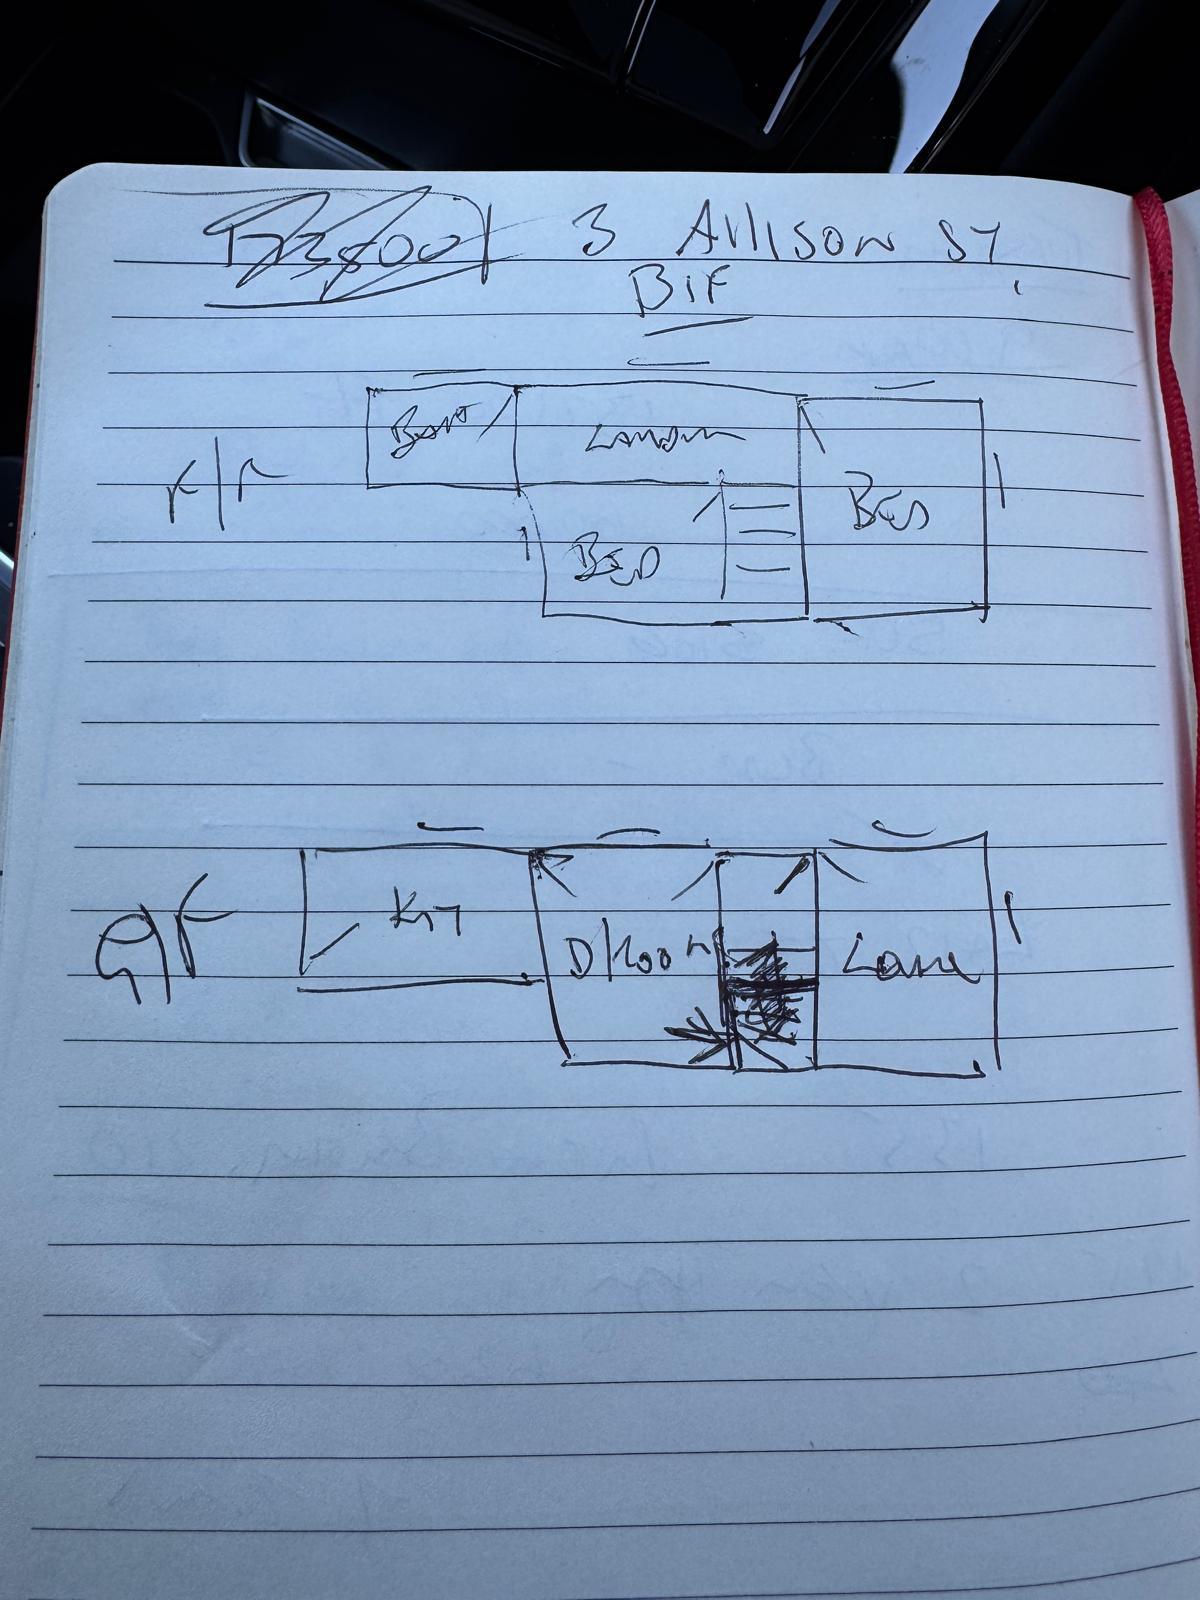 3 Allison St.
BIF
Bath Landing
F/F
Bed
Bed
G/F
Kit D/Room Lounge